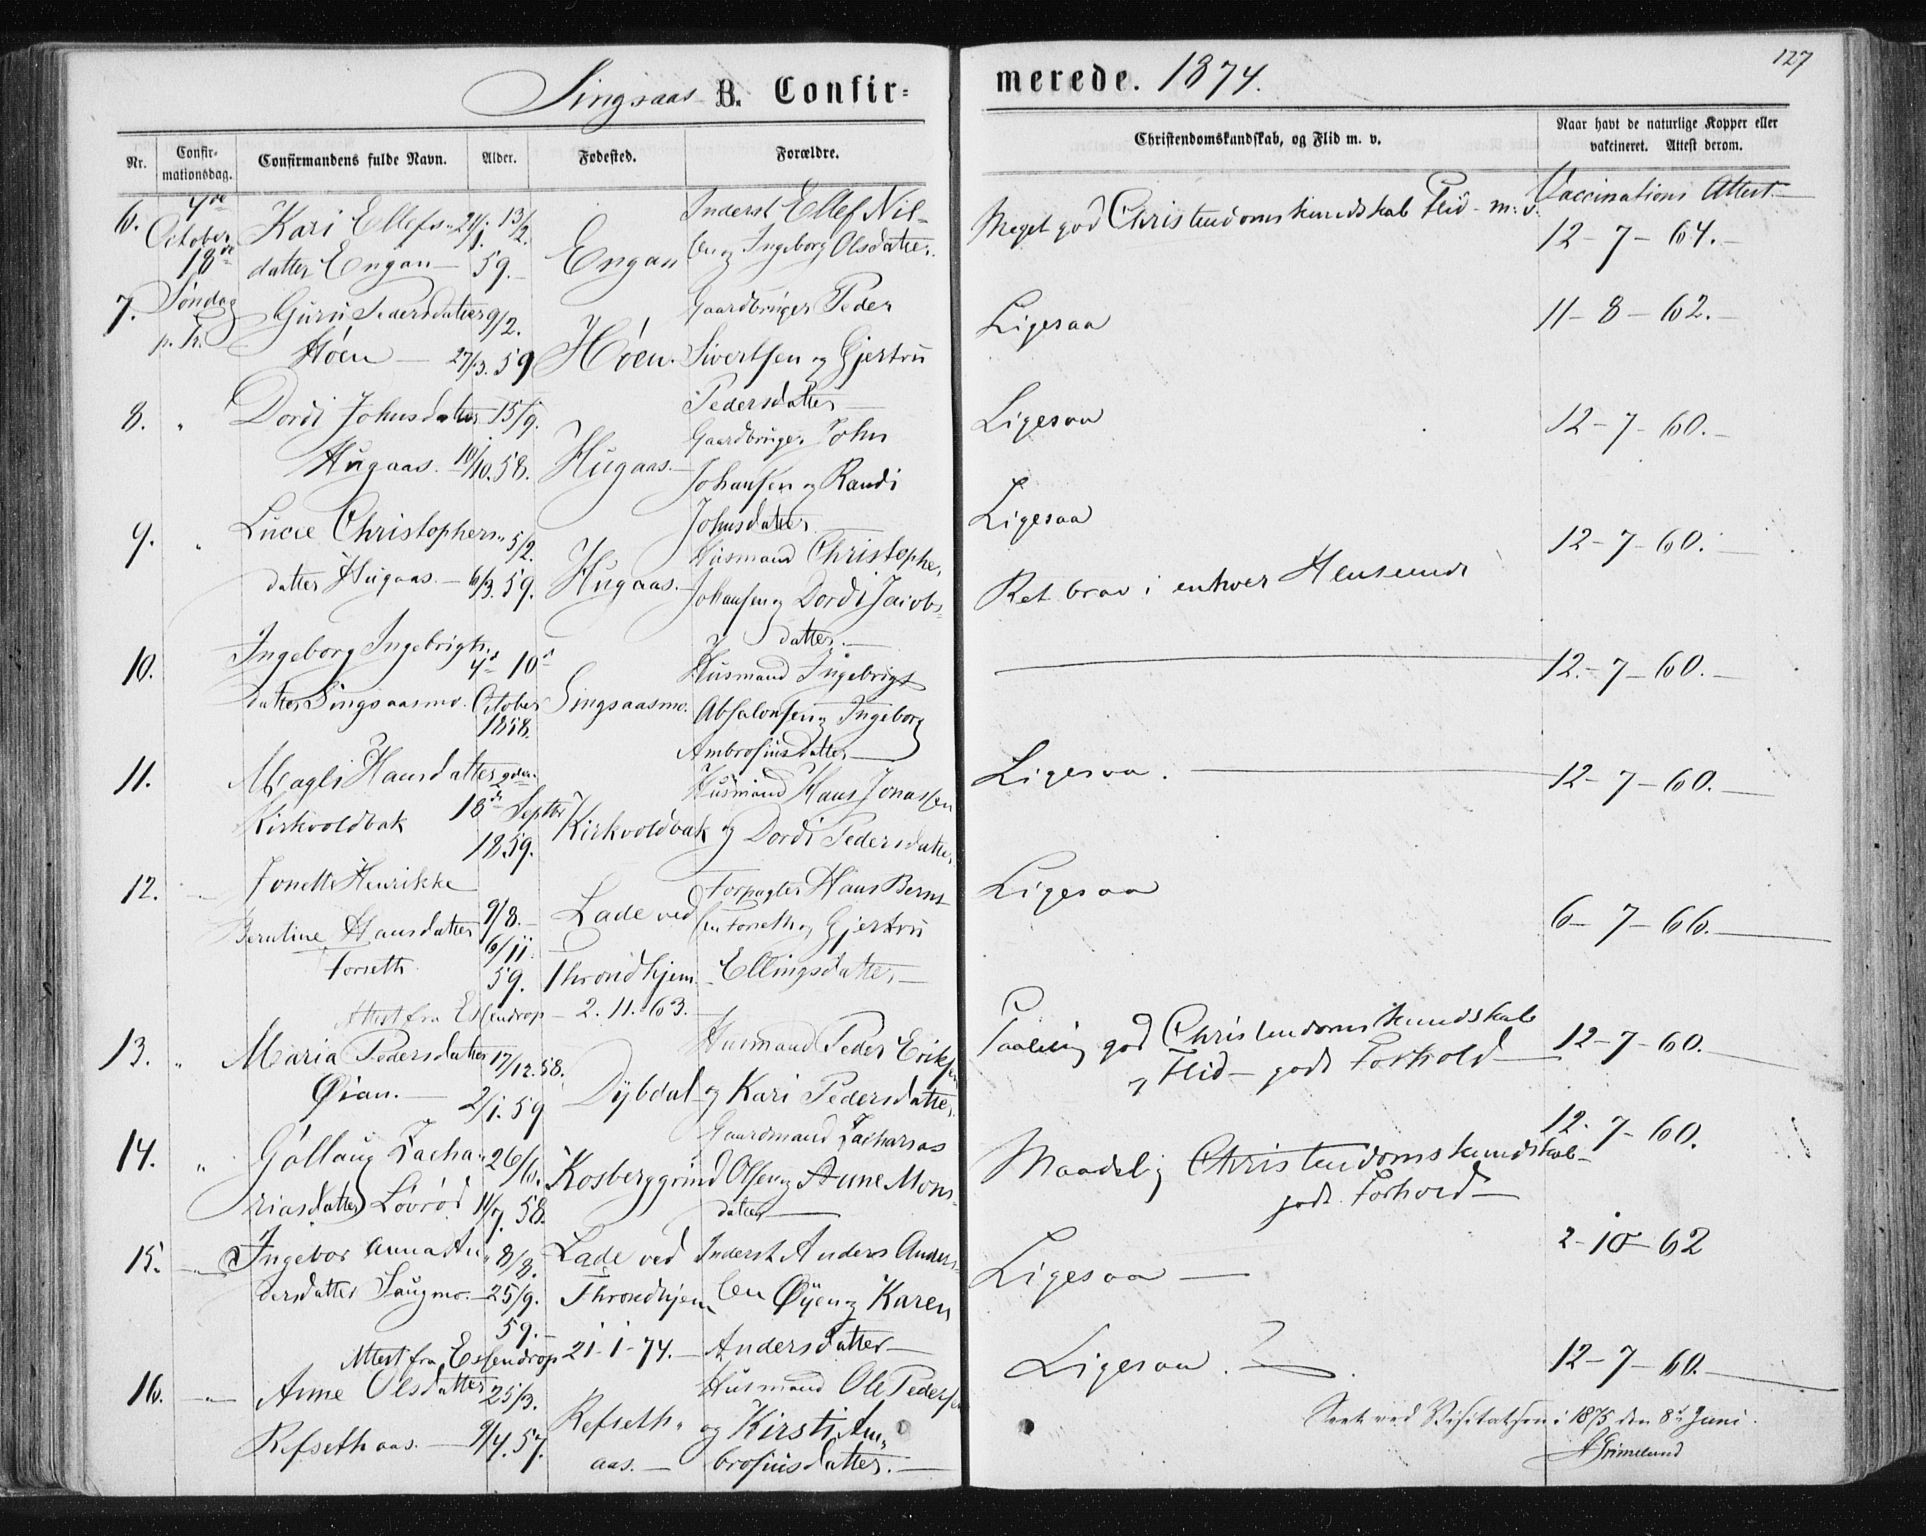 Singsaas B. Confir=
merede. 1874.
127
Nr.
Confir-
mationsdag.
Confirmandens fulde Navn.
Alder.
Fødested.
Forældre.
Christendomskundskab, og Flid m. v.
Naar havt de naturlige Kopper eller
vakcineret. Attest derom.
Vaccinations Attest
6.
October
18de
Søndag
p. Tr.
Kari Ellefs-
datter Engan
59.
Engan
Inderst Ellef Nil-
sen og Ingeborg Olsdatter.
Meget god Christendomskundskab Flid m. v.
12-7-64.
7.
Guru Pedersdatter 9/2.
Høen 27/3. 59
Høen.
Gaardbruger Peder
Sivertsen og Gjertru
Pedersdatter
Ligesaa
11-8-62.
8. "
Dordi Johnsdatter 15/9.
Hugaas. 10/10. 58.
Hugaas.
Gaardbruger John
Johansen og Randi
Johnsdatter
Ligesaa
12-7-60.
9. "
Lucie Christophers- 5/2.
datter Hugaas. 6/3. 59.
Hugaas.
Husmand Christopher
Johansen og Dordi Jacobs-
datter.
Ligesaa
Ret brav i enhver Henseende
12-7-60.
10.
Ingeborg Ingebrigts-
4de 10de
datter Singsaasmo. October
1858.
Singsaasmo.
Husmand Ingebrigt
Absalonsen og Ingeborg
Ambrosiusdatter
12-7-60.
11.
Magli Hansdatter
Kirkvoldbak 18de Septbr
1859.
Kirkvoldbak
Husmand Hans Jonassen
og Dordi Pedersdatter
Ligesaa.
12-7-60.
12. "
Jonette Henrikke
Berntine Hansdatter 9/8.
6/11.
Forseth 59.
Lade ved
Throndhjem
Forpagter Hans Bernt-
sen Forseth og Gjertru
Ellingsdatter
Ligesaa
6-7-66.
Attest fra Essendrop 2.11.63.
13. "
Maria Pedersdatter 17/12. 58.
Øian. 2/1. 59
Dybdal
Husmand Peder Eriksen
og Kari Pedersdatter
Taalelig god Christendomskundskab
og Flid - godt Forhold
12-7-60.
14. "
Gollaug Zacha- 26/6.
riasdatter Løvrød 11/7. 58.
Kosberggrind
Gaardmand Zacharias
Olsen og Anne Mons-
datter
Maadelig Christendomskundskab
godt Forhold
12-7-60.
15. "
Ingebor Anna An- 8/8.
dersdatter Haugmo. 25/9.
59.
Lade ved
Throndhjem
Inderst Anders Anders-
sen Øyen og Karen
Andersdatter
Ligesaa
2-10-62
Attest fra Essendrop 21-1-74.
16. "
Anne Olsdatter 25/3.
Refsethaas. 9/4. 57.
Refseth-
aas.
Husmand Ole Pedersen
og Kirsti Am-
brosiusdatter.
Ligesaa.
12-7-60.
Seet ved Visitatsen i 1875 den 8de Juni.
A Grimelund